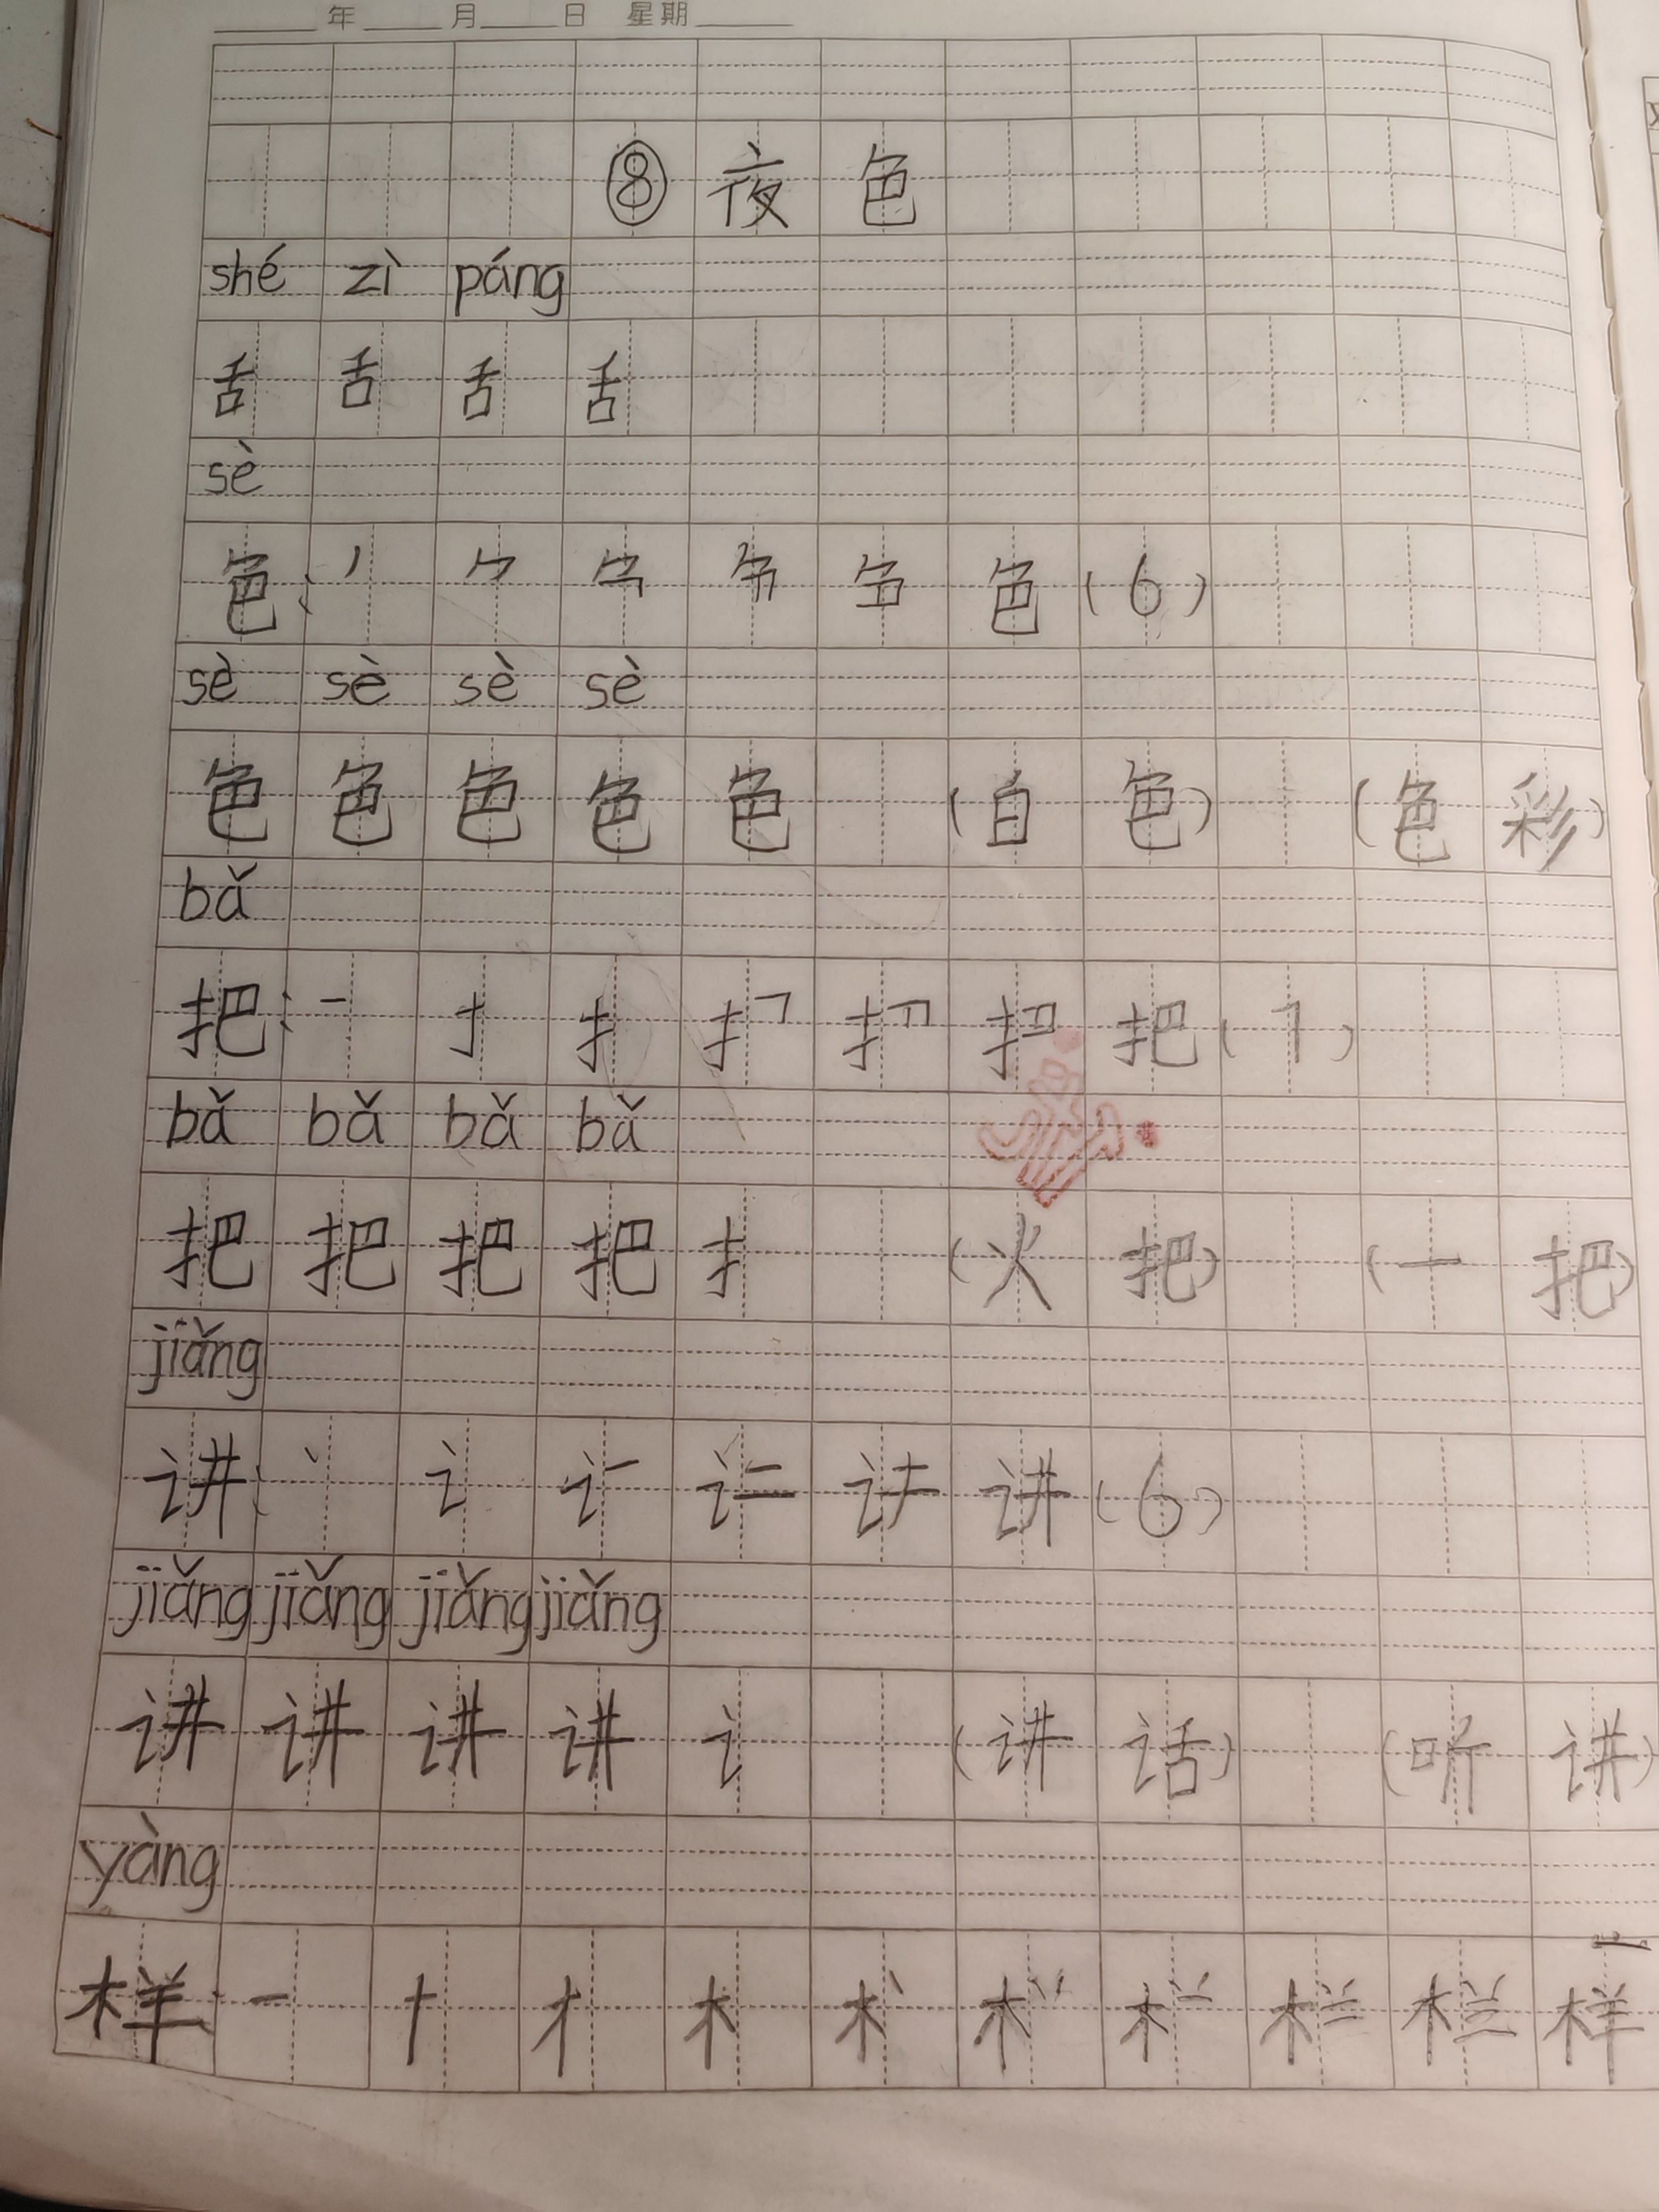 年 月 日 星期
⑧ 夜 色
shé zì páng
舌 舌 舌 舌
sè
色: 丿 色 (6)
sè sè sè sè
色 色 色 色 色 (白 色) (色 彩)
bǎ
把: 一 扌 把 (7)
bǎ bǎ bǎ bǎ
把 把 把 把 扌 (火 把) (一 把)
jiǎng
讲: 丶 讠 讲 (6)
jiǎng jiǎng jiǎng jiǎng
讲 讲 讲 讲 讠 (讲 话) (听 讲)
yàng
样: 一 十 才 木 样